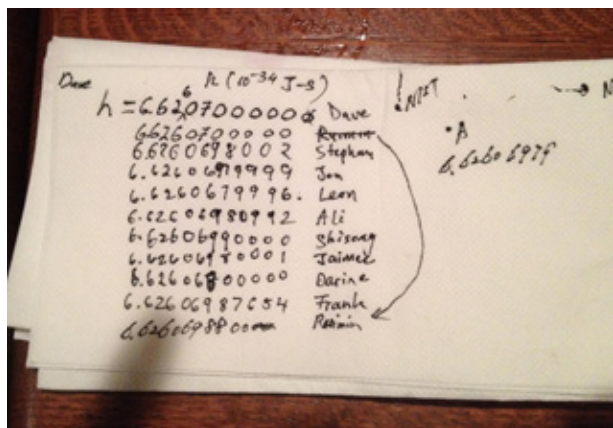 Dave
h (10⁻³⁴ J-s)
h = 6.6260700000 Dave
6.6260700000
6.6260698002 Stephan
6.6260699999 Jon
6.6260679996. Leon
6.6260698099 2 Ali
6.62606990000 Shisong
6.6260698 0001 Jaimee
6.6260680 0000 Darine
6.62606987654 Frank
6.6260698800
NIST
N
A
6.62606979